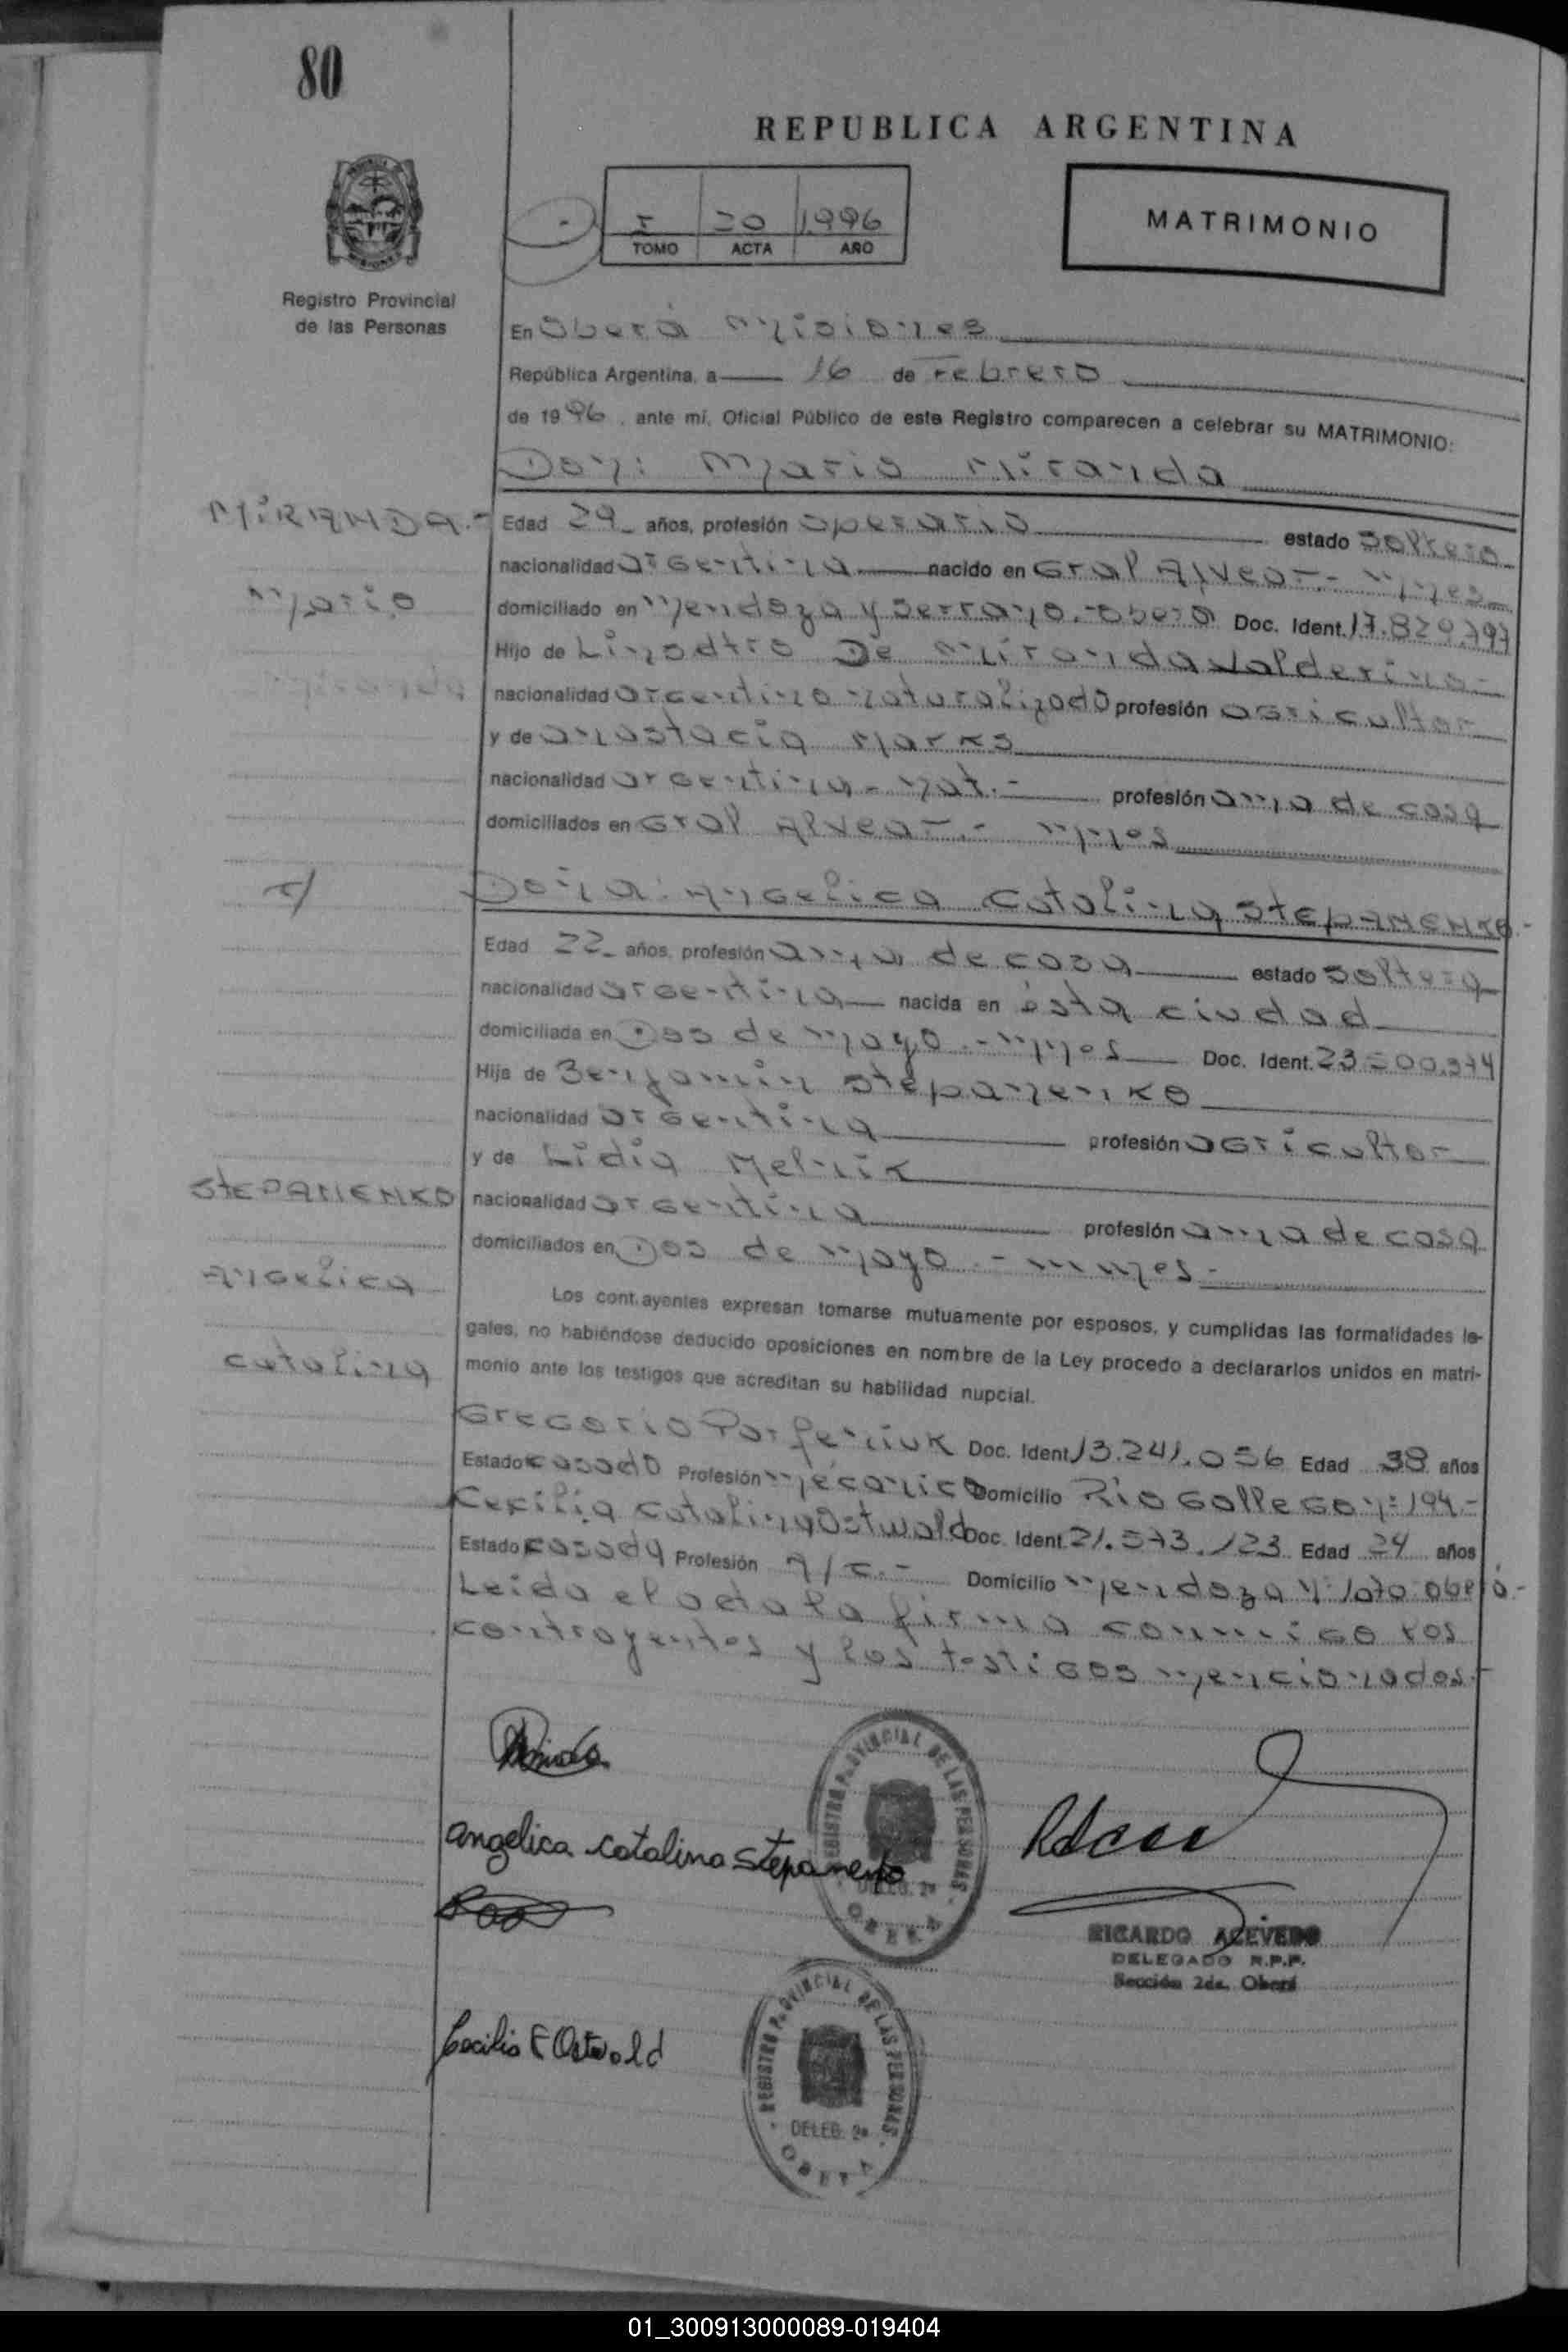 80
REPUBLICA ARGENTINA
I 20 1996
TOMO ACTA AÑO
MATRIMONIO
Registro Provincial
de las Personas
En Oberá Misiones
República Argentina, a 16 de Febrero
de 1996, ante mí, Oficial Público de este Registro comparecen a celebrar su MATRIMONIO:
Don: Mario Miranda
MIRANDA.-
Edad 29 años, profesión operario estado soltero
nacionalidad argentina nacido en Gral Alvear.- Mnes
Mario
domiciliado en Mendoza y Serrano.-Oberá Doc. Ident. 17.829.797
Hijo de Lizodtro De Miranda Valderino-
nacionalidad argentino naturalizado profesión agricultor
y de Anastacia Marks
nacionalidad argentina - nat.- profesión ama de casa
domiciliados en Gral Alvear.- Mnes
c/
Doña: Angelica Catalina Stepanenko.-
Edad 22 años, profesión ama de casa estado soltera
nacionalidad argentina nacida en ésta ciudad
domiciliada en Dos de Mayo.-Mnes Doc. Ident. 23.500.374
Hija de Benjamin Stepanenko
nacionalidad argentina profesión agricultor
y de Lidia Melnik
STEPANENKO
nacionalidad argentina profesión ama de casa
domiciliados en Dos de Mayo.- Mnes-
Angelica
Los contrayentes expresan tomarse mutuamente por esposos, y cumplidas las formalidades le-
gales, no habiéndose deducido oposiciones en nombre de la Ley procedo a declararlos unidos en matri-
Catalina
monio ante los testigos que acreditan su habilidad nupcial.
Gregorio Parfeniuk Doc. Ident 13.241.056 Edad 38 años
Estado casado Profesión mecanico Domicilio Rio Gallegos 194.-
Cecilia Catalina Ostwald Doc. Ident. 21.573.123 Edad 24 años
Estado casada Profesión A/C.- Domicilio Mendoza y Oberá.-
Leida el acta la firma conmigo los
contrayentes y los testigos mencionados.-
angelica catalina stepanenko
REGISTRO PROVINCIAL DE LAS PERSONAS
DELEG. 2ª
OBERA
RICARDO ACEVEDO
DELEGADO R.P.P.
Sección 2da. Oberá
Cecilia E Ostwald
REGISTRO PROVINCIAL DE LAS PERSONAS
DELEG. 2ª
OBERA
01_300913000089-019404